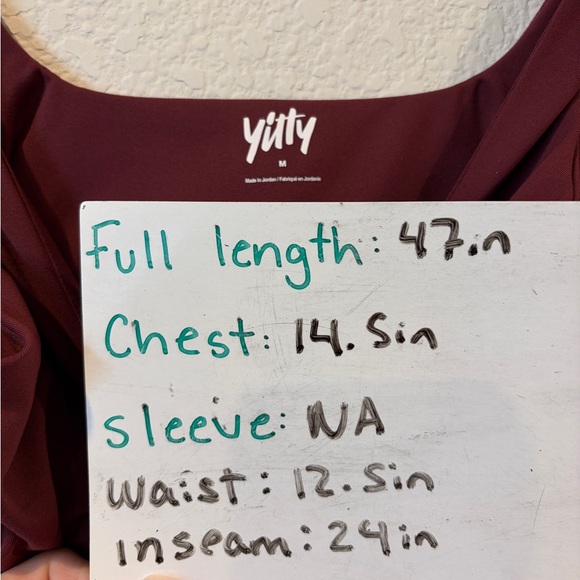 yitty
M
Made in Jordan / Fabriqué en Jordanie
Full length: 47in
Chest: 14.5in
sleeve: NA
Waist: 12.5in
inseam: 24in